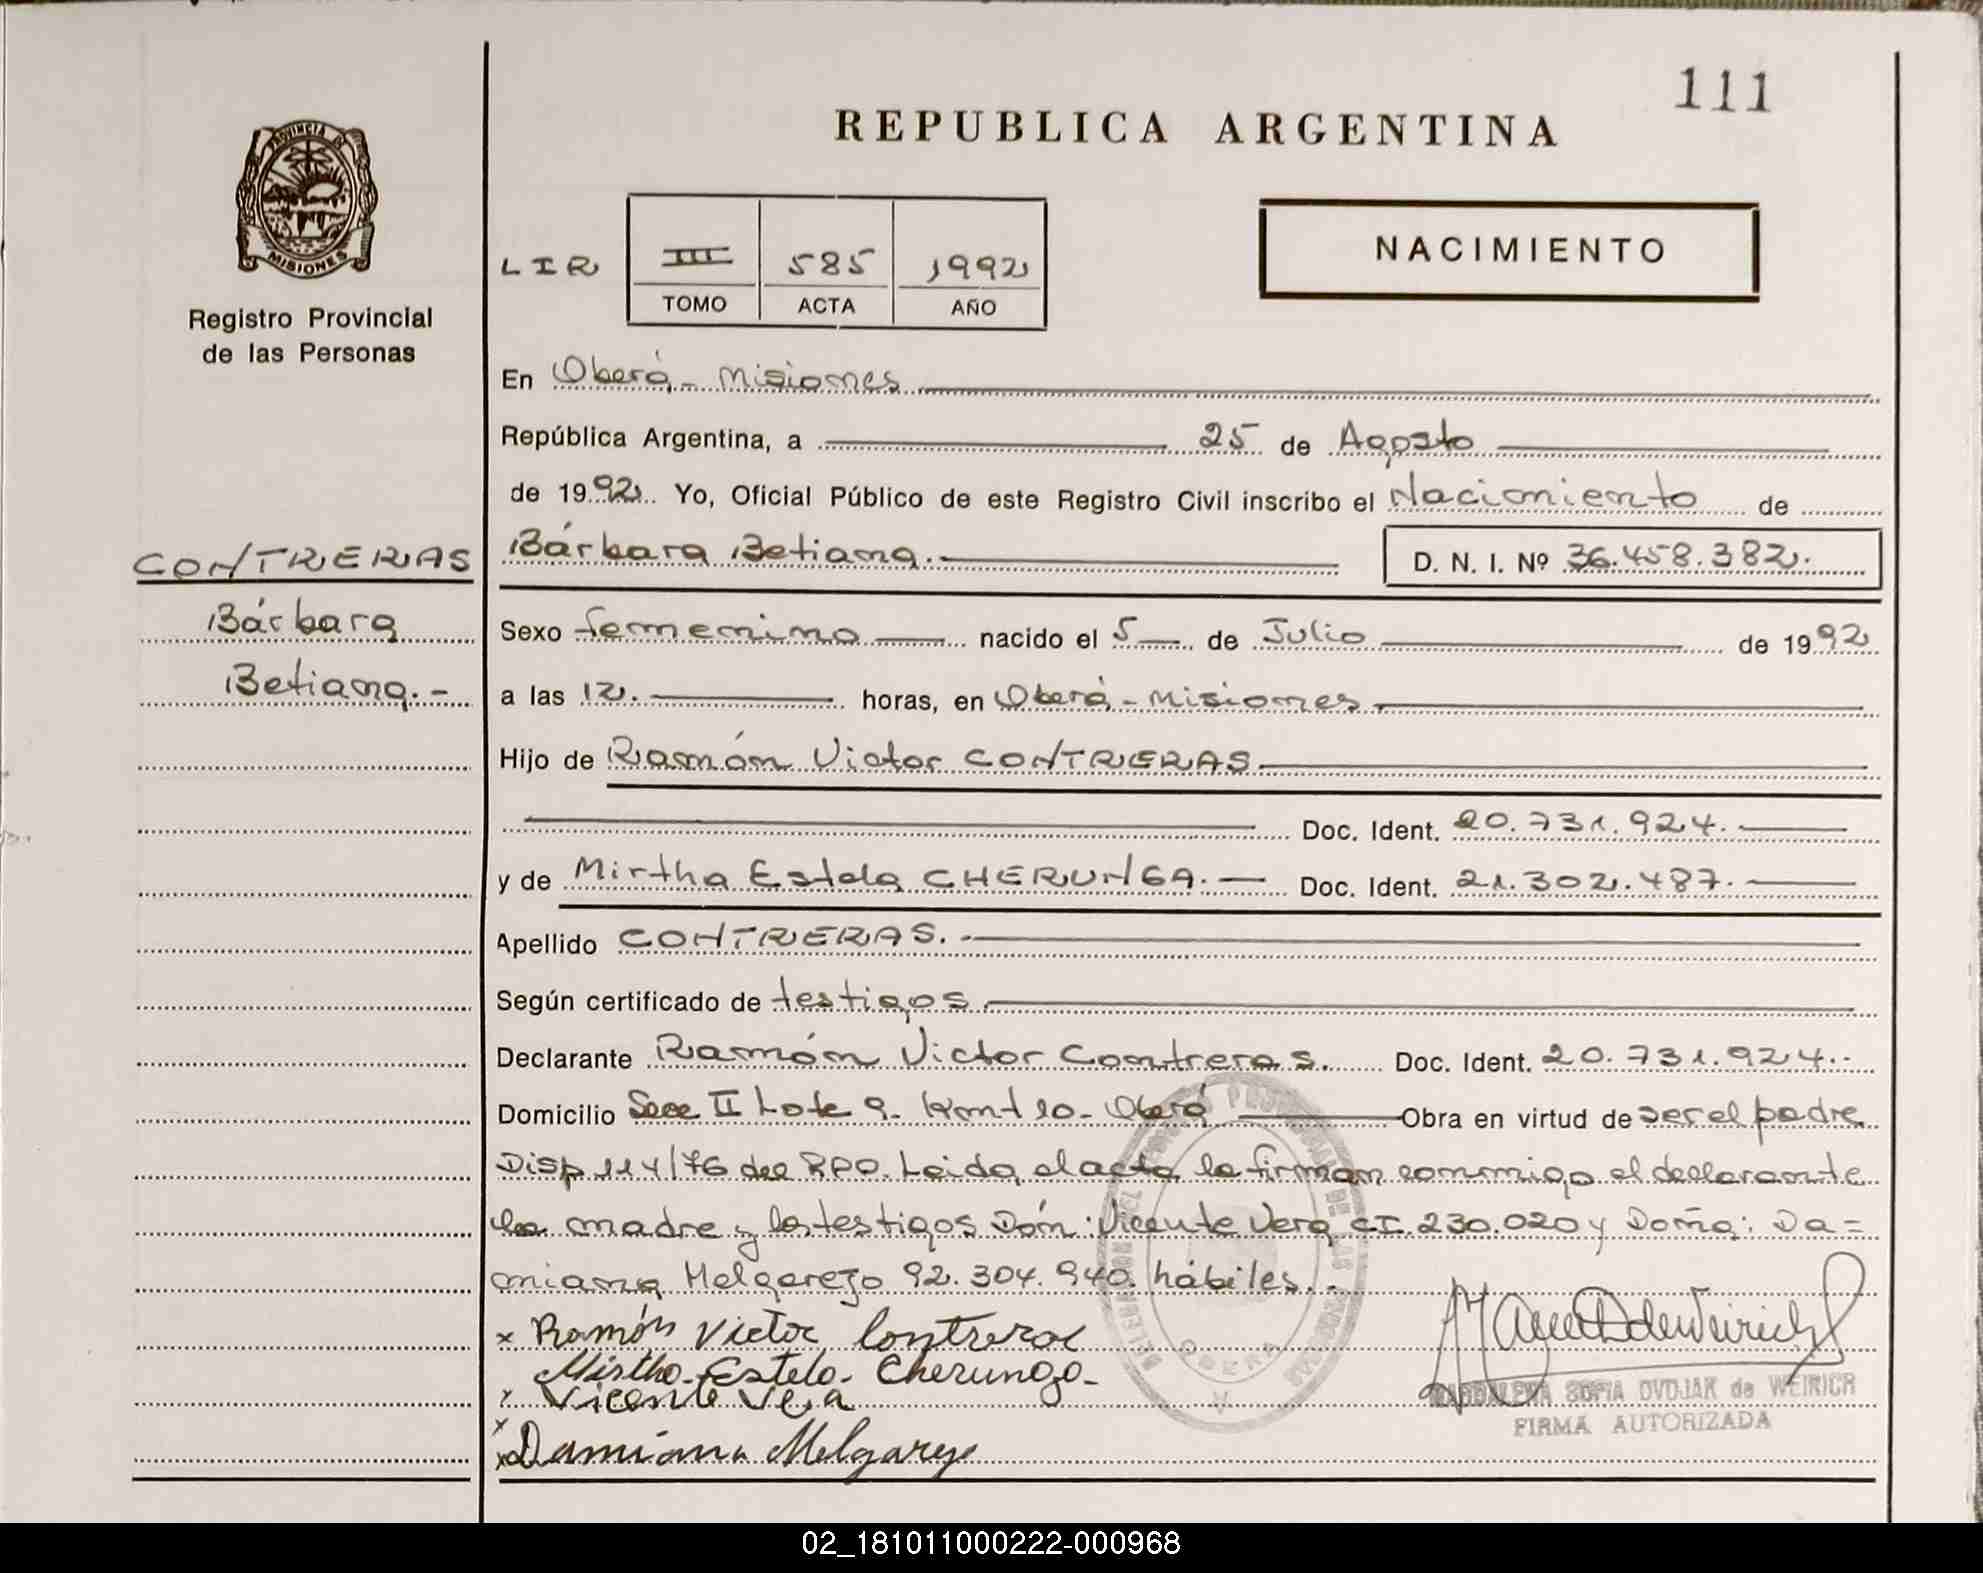 111
REPUBLICA ARGENTINA
PROVINCIA DE
MISIONES
Registro Provincial
de las Personas
NACIMIENTO
LIR III 585 1992
TOMO ACTA AÑO
En Oberá - Misiones
República Argentina, a 25 de Agosto
de 1992 Yo, Oficial Público de este Registro Civil inscribo el Nacimiento de
Bárbara Betiana. D. N. I. Nº 36.458.382.
CONTRERAS
Bárbara
Betiana.-
Sexo femenino nacido el 5 de Julio de 1992
a las 12. horas, en Oberá - Misiones
Hijo de Ramón Victor CONTRERAS
Doc. Ident. 20.731.924.
y de Mirtha Estela CHERUNGA. Doc. Ident. 21.302.487.
Apellido CONTRERAS.
Según certificado de testigos
Declarante Ramón Victor Contreras. Doc. Ident. 20.731.924.-
Domicilio Secc II Lote 9- Oberá Obra en virtud de ser el padre
Disp 114/76 del RPO. Leida el acta la firman conmigo el declarante
la madre y los testigos Don: Vicente Vera CI. 230.020 y Doña: Da=
miana Melgarejo 92.304.940. hábiles.-
x Ramón Victor Contreras
Mirtha Estela Cherunga
x Vicente Vera
x Damiana Melgarejo
OBERA
MAGDALENA SOFIA OVDJAK de WEIRICH
FIRMA AUTORIZADA
02_181011000222-000968